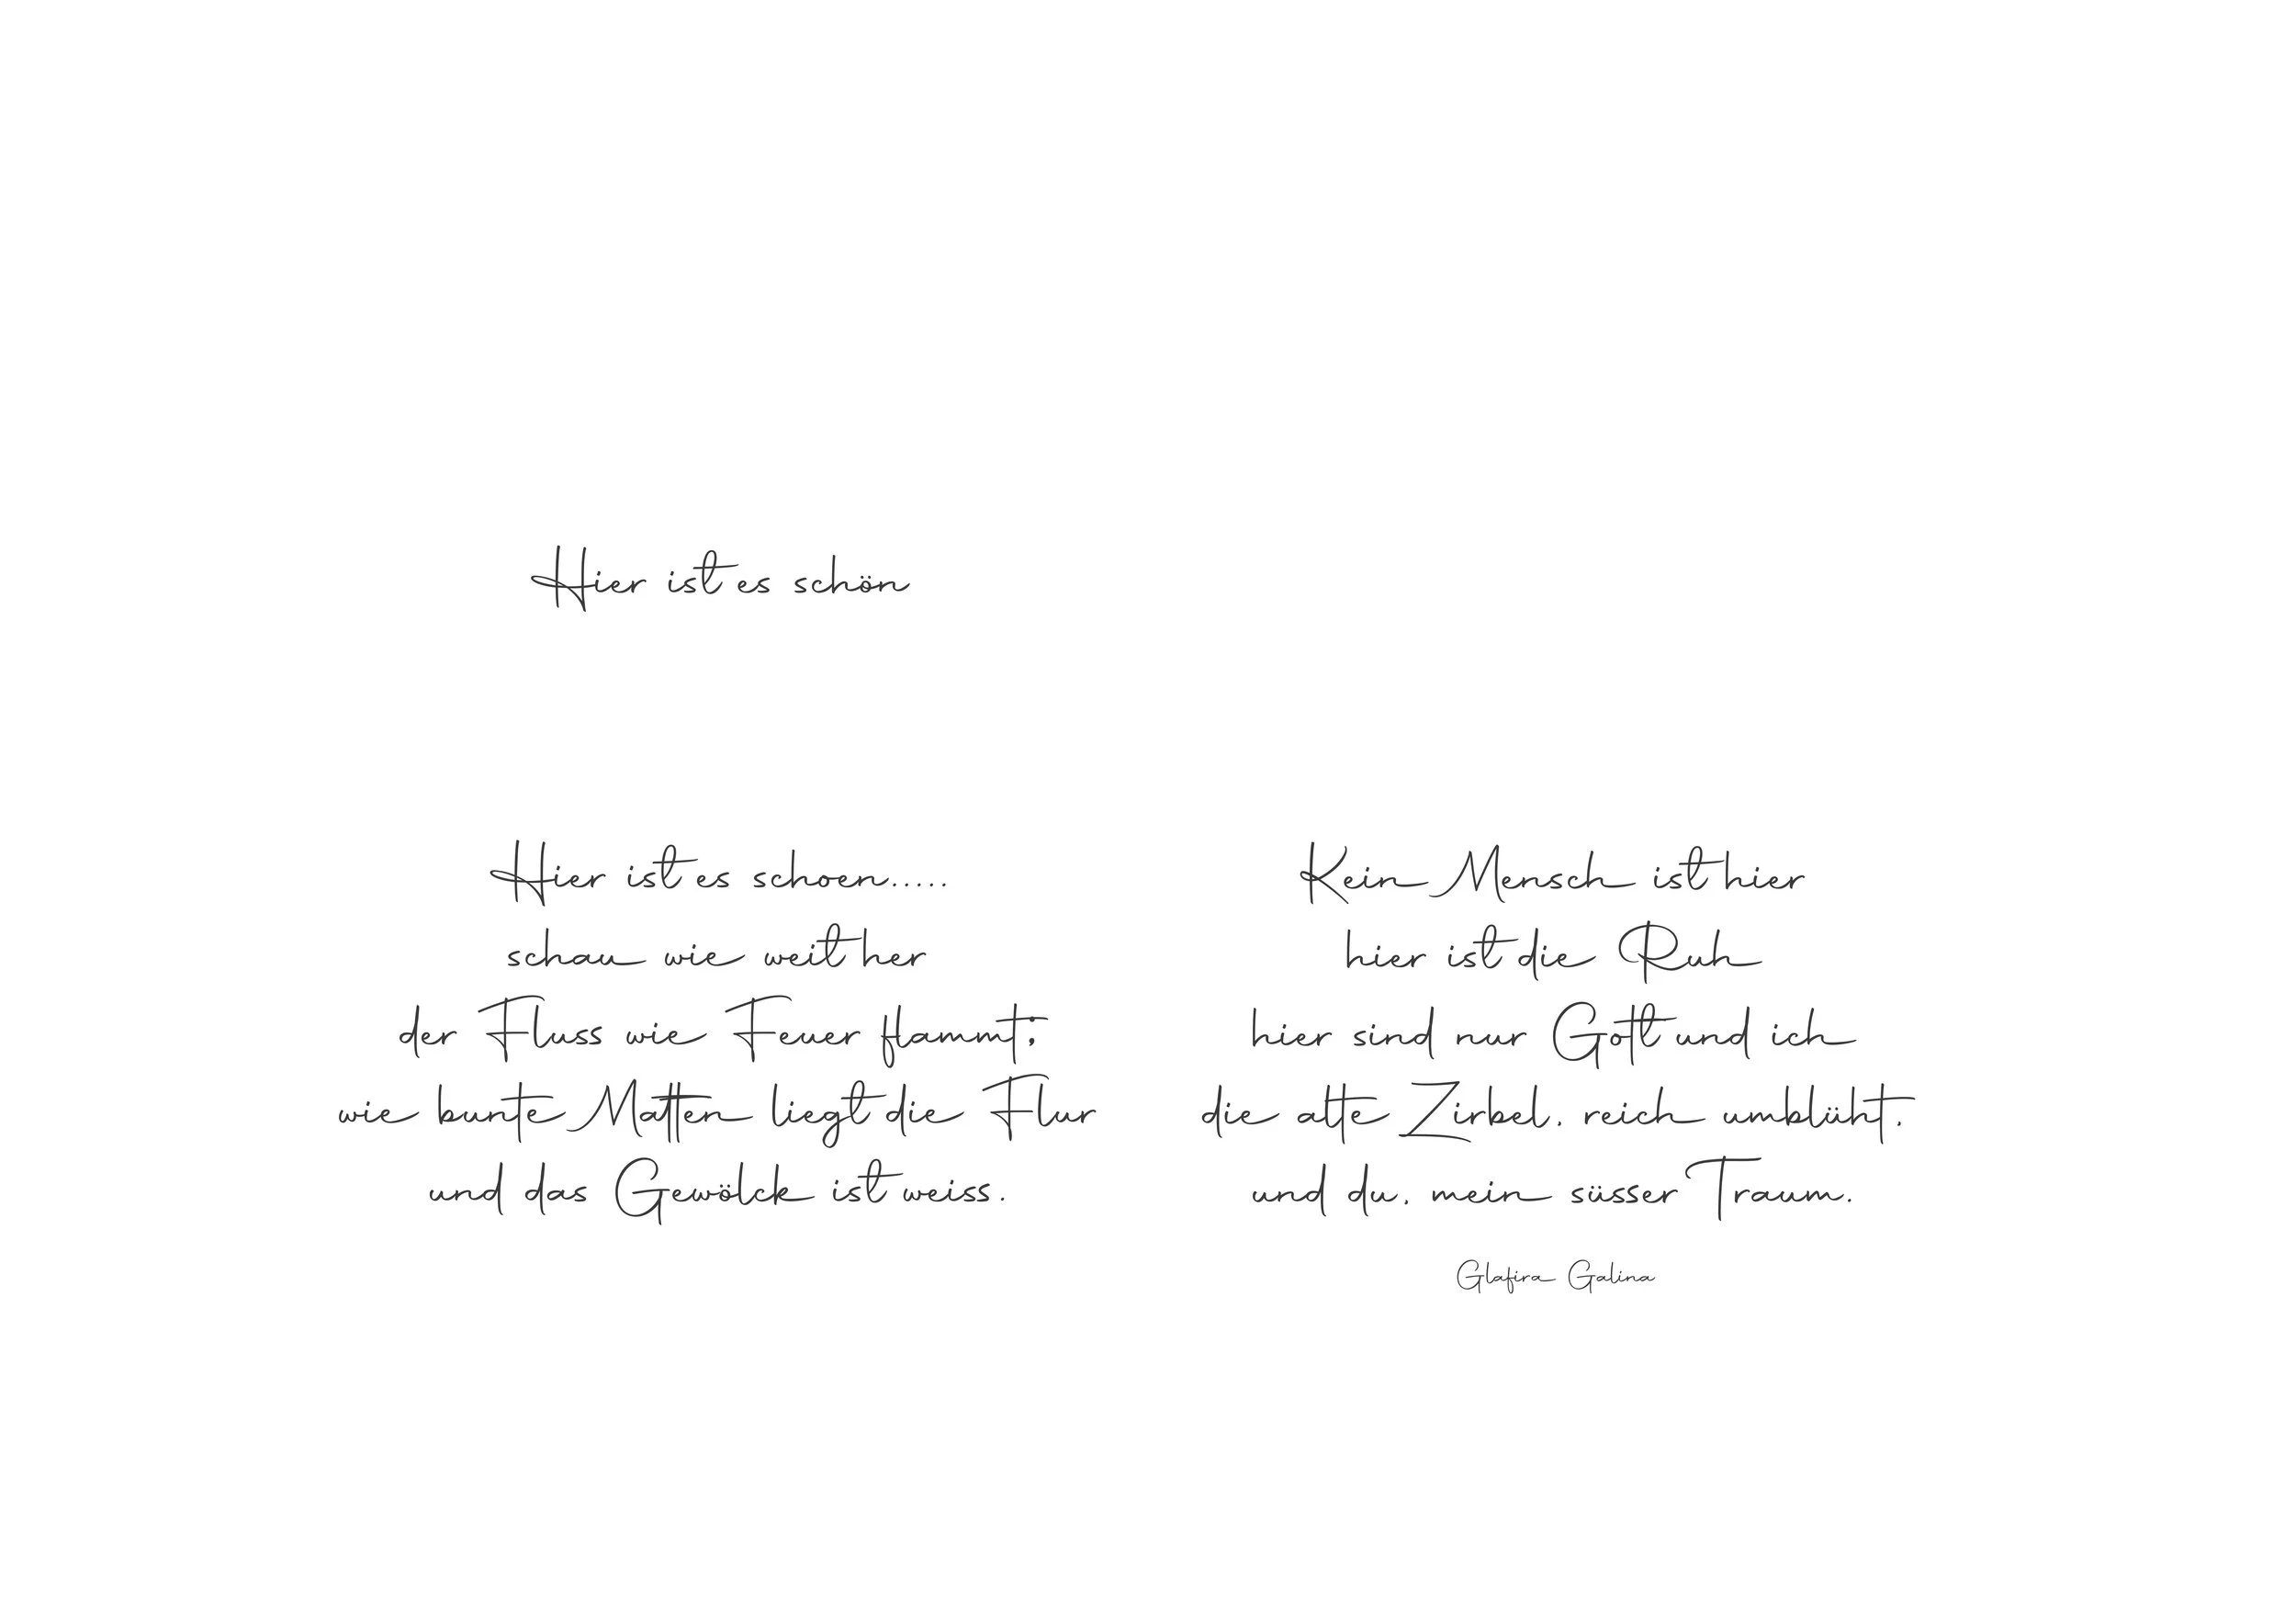 Hier ist es schön
Hier ist es schoen.....
schau wie weit her
der Fluss wie Feuer flammt;
wie bunte Matten liegt die Flur
und das Gewölck ist weiss.
Kein Mensch ist hier
hier ist die Ruh
hier sind nur Gott und ich
die alte Zirbel, reich umblüht,
und du, mein süsser Traum.
Glafira Galina